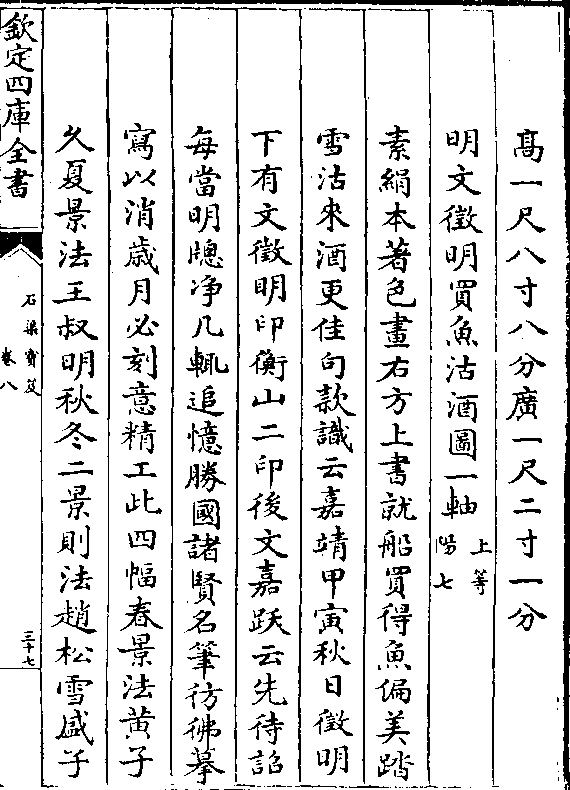 高一尺八寸八分廣一尺二寸一分
明文徵明買魚沽酒圖一軸 上等
陽七
素絹本著色畫右方上書就船買得魚偏美踏
雪沽來酒更佳句款識云嘉靖甲寅秋日徵明
下有文徵明印衡山二印後文嘉跋云先待詔
每當明牕净几輒追憶勝國諸賢名筆彷彿摹
寫以消歲月必刻意精工此四幅春景法黄子
久夏景法王叔明秋冬二景則法趙松雪盛子
欽定四庫全書
石渠寶笈
卷八
三十七